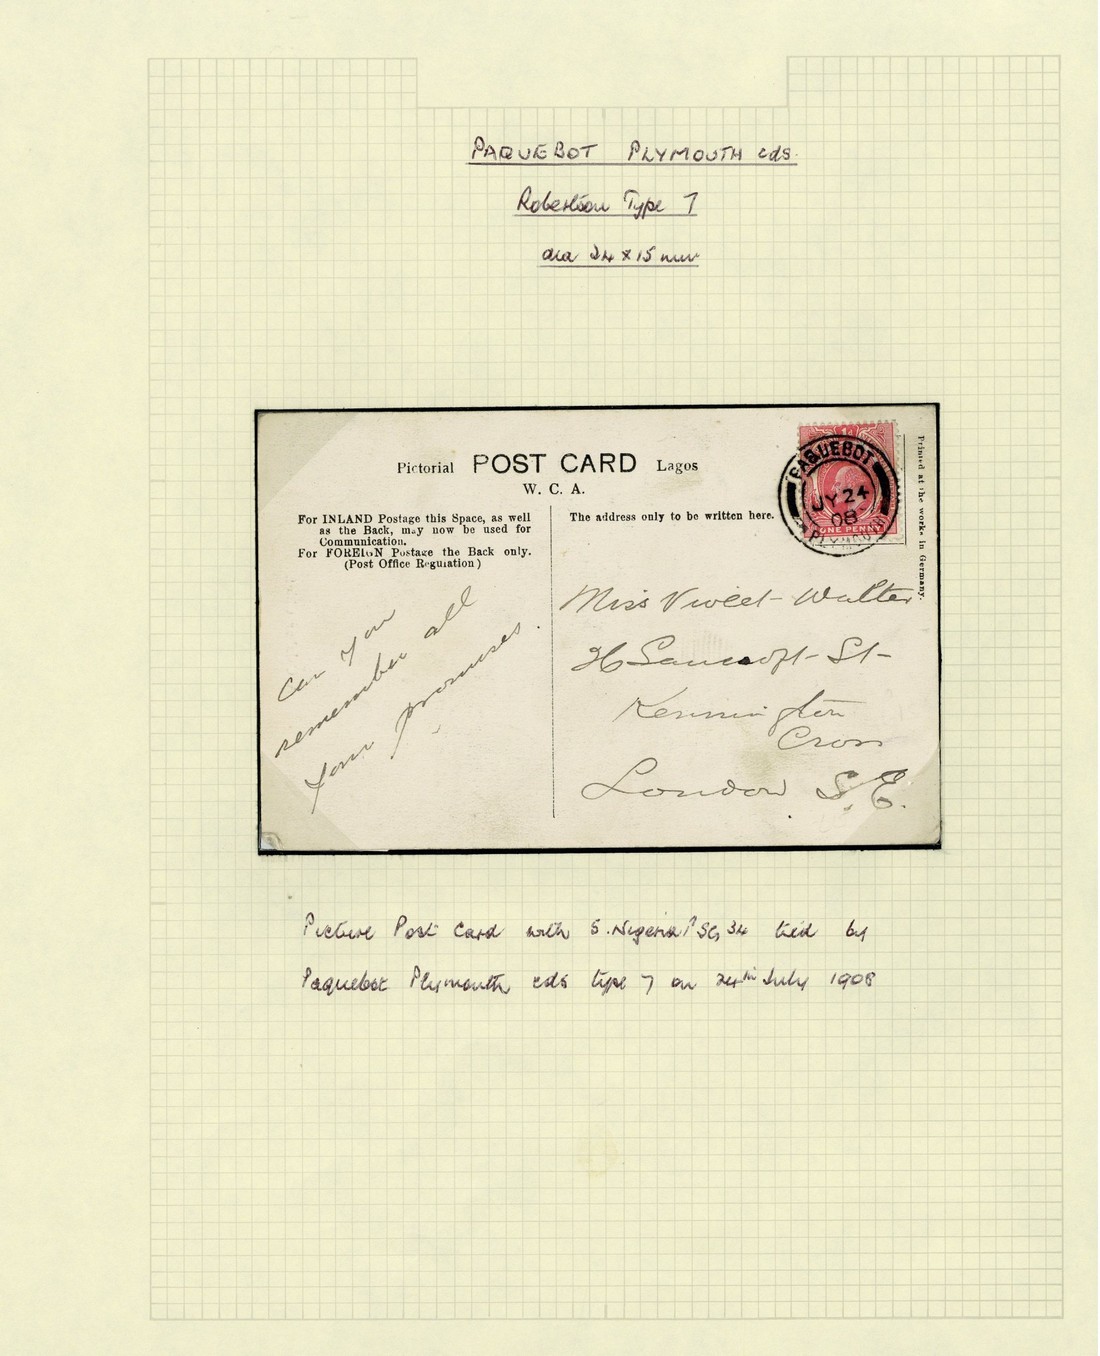 PAQUEBOT PLYMOUTH cds.
Robertson Type 7
dia 24 x 15 mm
Pictorial POST CARD Lagos
W. C. A.
For INLAND Postage this Space, as well
as the Back, may now be used for
Communication.
For FOREIGN Postage the Back only.
(Post Office Regulation)
The address only to be written here.
PAQUEBOT
JY 24
08
PLYMOUTH
ONE PENNY
Printed at the works in Germany.
Can you
remember all
your promises.
Miss Violet Walter
26 Sancroft St
Kennington
Cross
London S.E.
Picture Post Card with S. Nigeria SG 34 tied by
Paquebot Plymouth cds type 7 on 24th July 1908